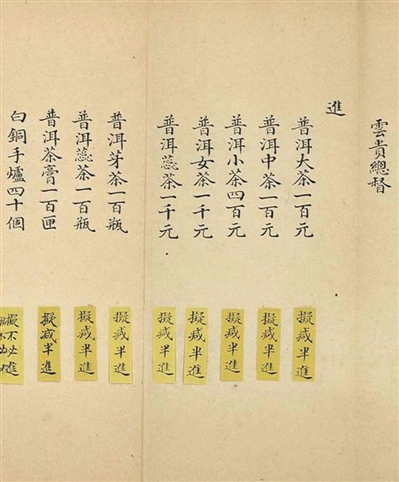 雲貴總督
進
普洱大茶一百元
擬減半進
普洱中茶一百元
擬減半進
普洱小茶四百元
擬減半進
普洱女茶一千元
擬減半進
普洱蕊茶一千元
擬減半進
普洱芽茶一百瓶
擬減半進
普洱蕊茶一百瓶
擬減半進
普洱茶膏一百匣
擬減半進
白銅手爐四十個
擬不必進